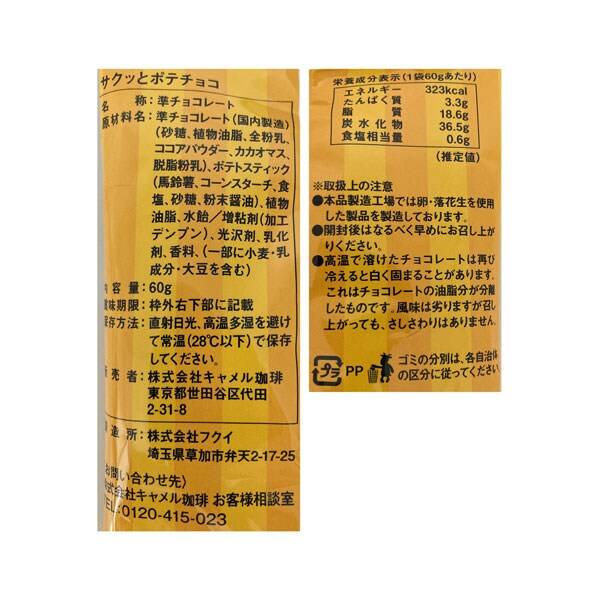 サクッとポテチョコ
名 称:準チョコレート
原材料名:準チョコレート(国内製造)
(砂糖、植物油脂、全粉乳、
ココアパウダー、カカオマス、
脱脂粉乳)、ポテトスティック
(馬鈴薯、コーンスターチ、食
塩、砂糖、粉末醤油)、植物
油脂、水飴/増粘剤(加工
デンプン)、光沢剤、乳化
剤、香料、(一部に小麦・乳
成分・大豆を含む)
内 容 量:60g
賞味期限:枠外右下部に記載
保存方法:直射日光、高温多湿を避け
て常温(28℃以下)で保存
してください。
販 売 者:株式会社キャメル珈琲
東京都世田谷区代田
2-31-8
製 造 所:株式会社フクイ
埼玉県草加市弁天2-17-25
(お問い合わせ先)
株式会社キャメル珈琲 お客様相談室
TEL:0120-415-023
栄養成分表示(1袋60gあたり)
エネルギー 323kcal
たんぱく質 3.3g
脂質 18.6g
炭水化物 36.5g
食塩相当量 0.6g
(推定値)
※取扱上の注意
●本品製造工場では卵・落花生を使用
した製品を製造しております。
●開封後はなるべく早めにお召し上が
りください。
●高温で溶けたチョコレートは再び
冷えると白く固まることがあります。
これはチョコレートの油脂分が分離
したものです。風味は劣りますが召し
上がっても、さしさわりはありません。
プラ PP ゴミの分別は、各自治体
の区分に従ってください